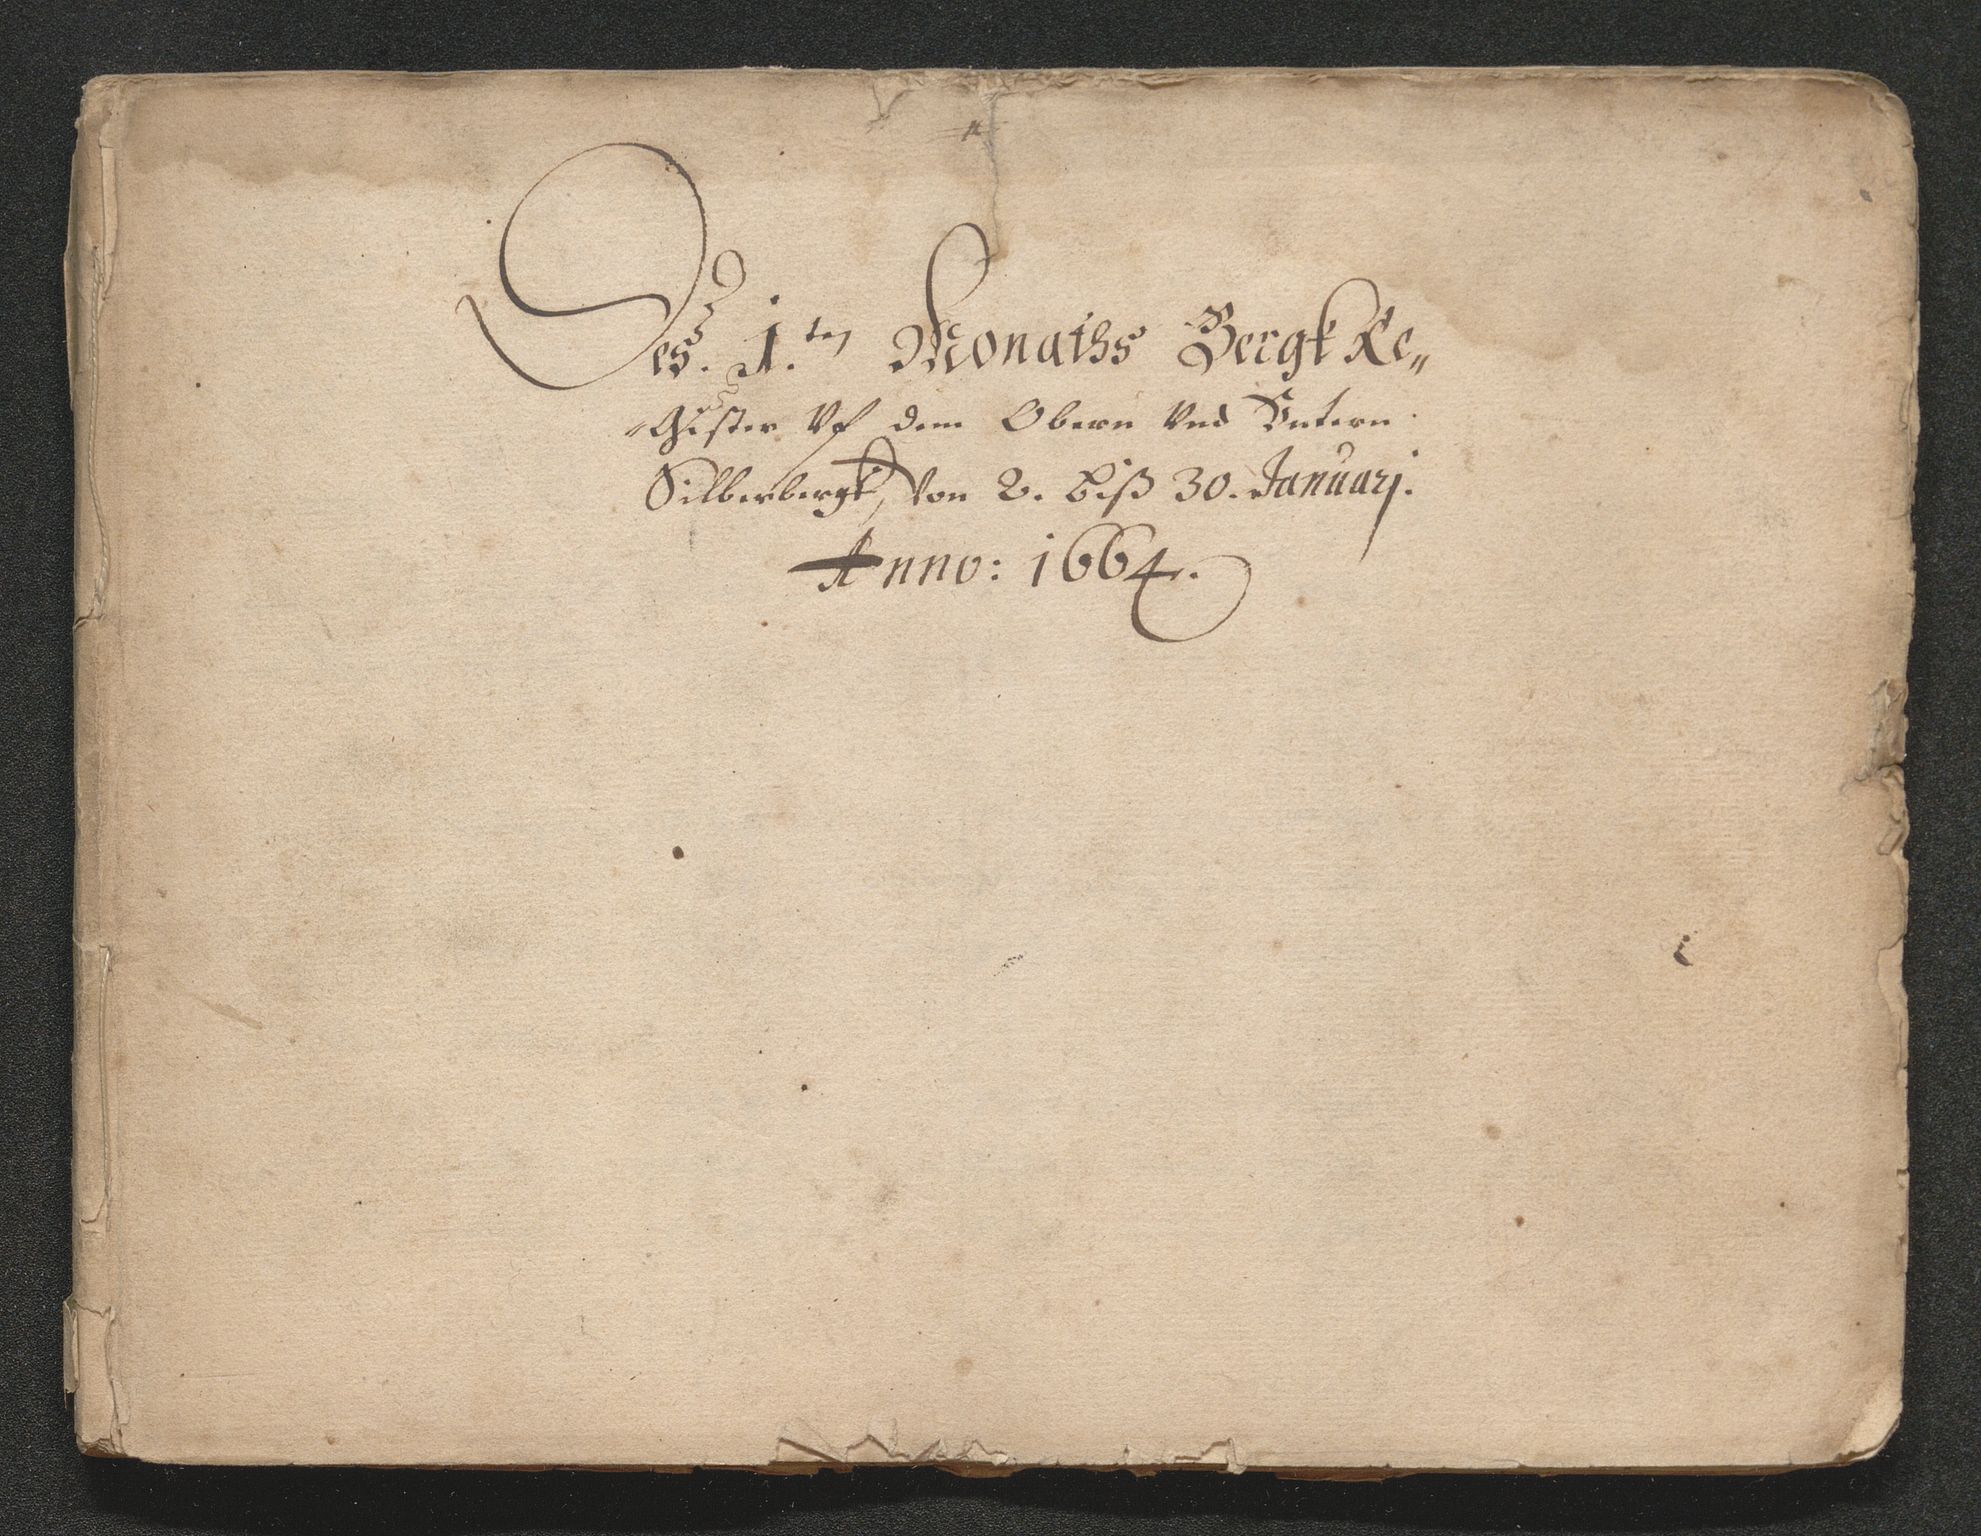 Des. 1.ten Monaths Bergk Re„
gister Vf dem Obern Vnd Vntern
Silberbergk, Von 2. biß 30. Januarj.
Anno: 1664.